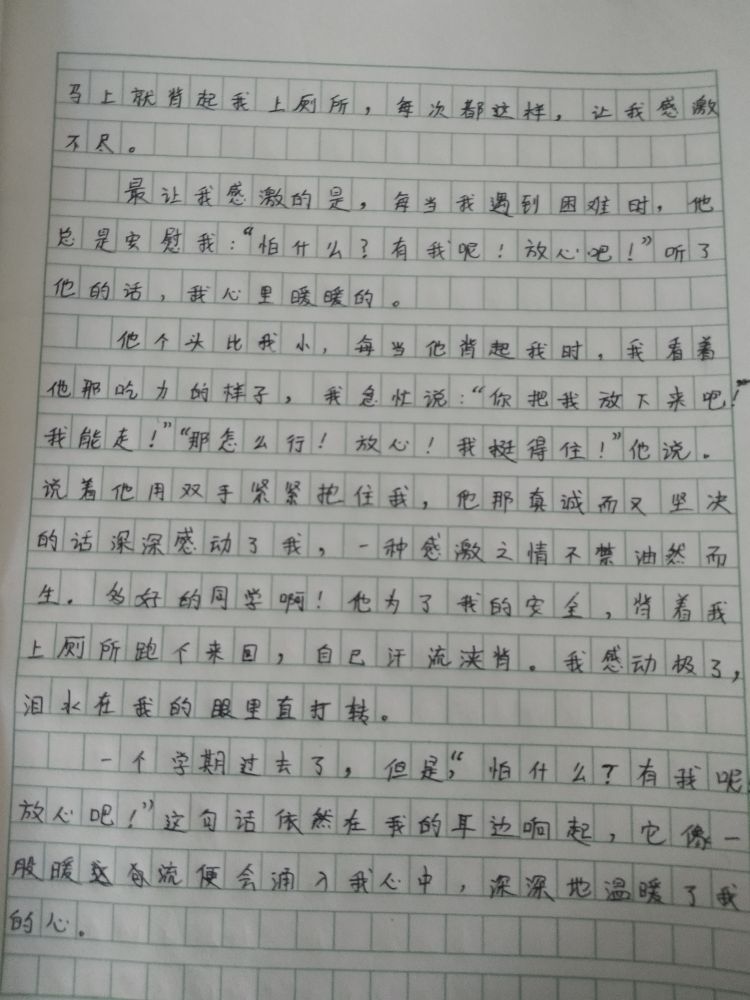 马上就背起我上厕所，每次都这样，让我感激
不尽。
最让我感激的是，每当我遇到困难时，他
总是安慰我：“怕什么？有我呢！放心吧！”听了
他的话，我心里暖暖的。
他个头比我小，每当他背起我时，我看着
他那吃力的样子，我急忙说：“你把我放下来吧！
我能走！”“那怎么行！放心！我挺得住！”他说。
说着他用双手紧紧抱住我，他那真诚而又坚决
的话深深感动了我，一种感激之情不禁油然而
生。多好的同学啊！他为了我的安全，背着我
上厕所跑下来回，自己汗流浃背。我感动极了，
泪水在我的眼里直打转。
一个学期过去了，但是，“怕什么？有我呢！
放心吧！”这句话依然在我的耳边响起，它像一
股暖流便会涌入我心中，深深地温暖了我
的心。